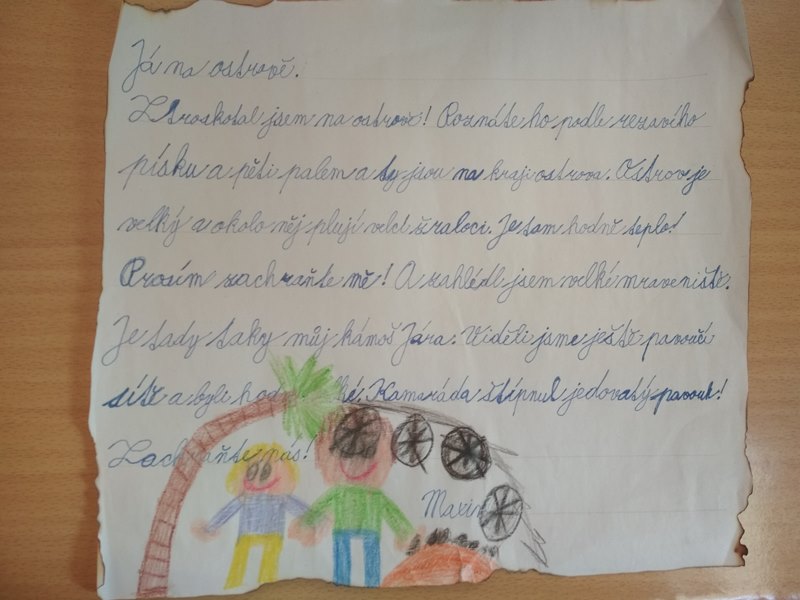 Já na ostrově.
Ztroskotal jsem na ostrově! Poznáte ho podle rezavího
písku a pěti palem a ty jsou na kraji ostrova. Ostrov je
velký a okolo něj plují velcí žraloci. Je tam hodně teplo!
Prosím zachraňte mě! A zahlédl jsem velké mraveniště.
Je tady taky můj kámoš Jára. Viděli jsme ještě pavoučí
sítě a byli hod ké. Kamaráda štípnul jedovatý pavouk!
Zachraňte nás!
Maxim